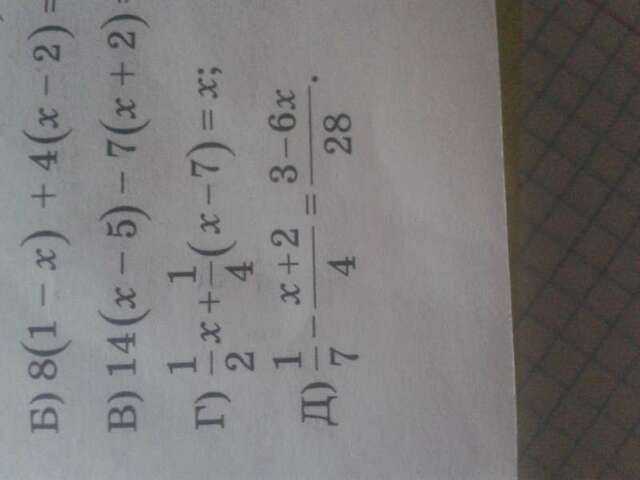 Б) 8(1 − x) + 4(x − 2) =
В) 14(x − 5) − 7(x + 2) =
Г) 1/2 x + 1/4 (x − 7) = x;
Д) 1/7 − (x + 2)/4 = (3 − 6x)/28.